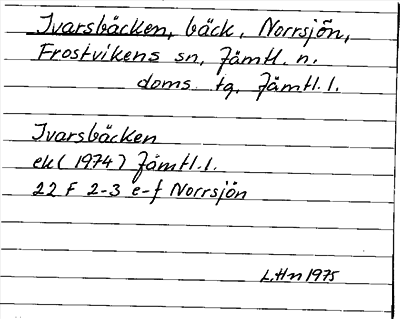 Ivarsbäcken, bäck, Norrsjön,
Frostvikens sn, Jämtl. n.
doms. tg, Jämtl. l.
Ivarsbäcken
ek (1974) Jämtl. l.
22 F 2-3 e-f Norrsjön
L.Hn 1975